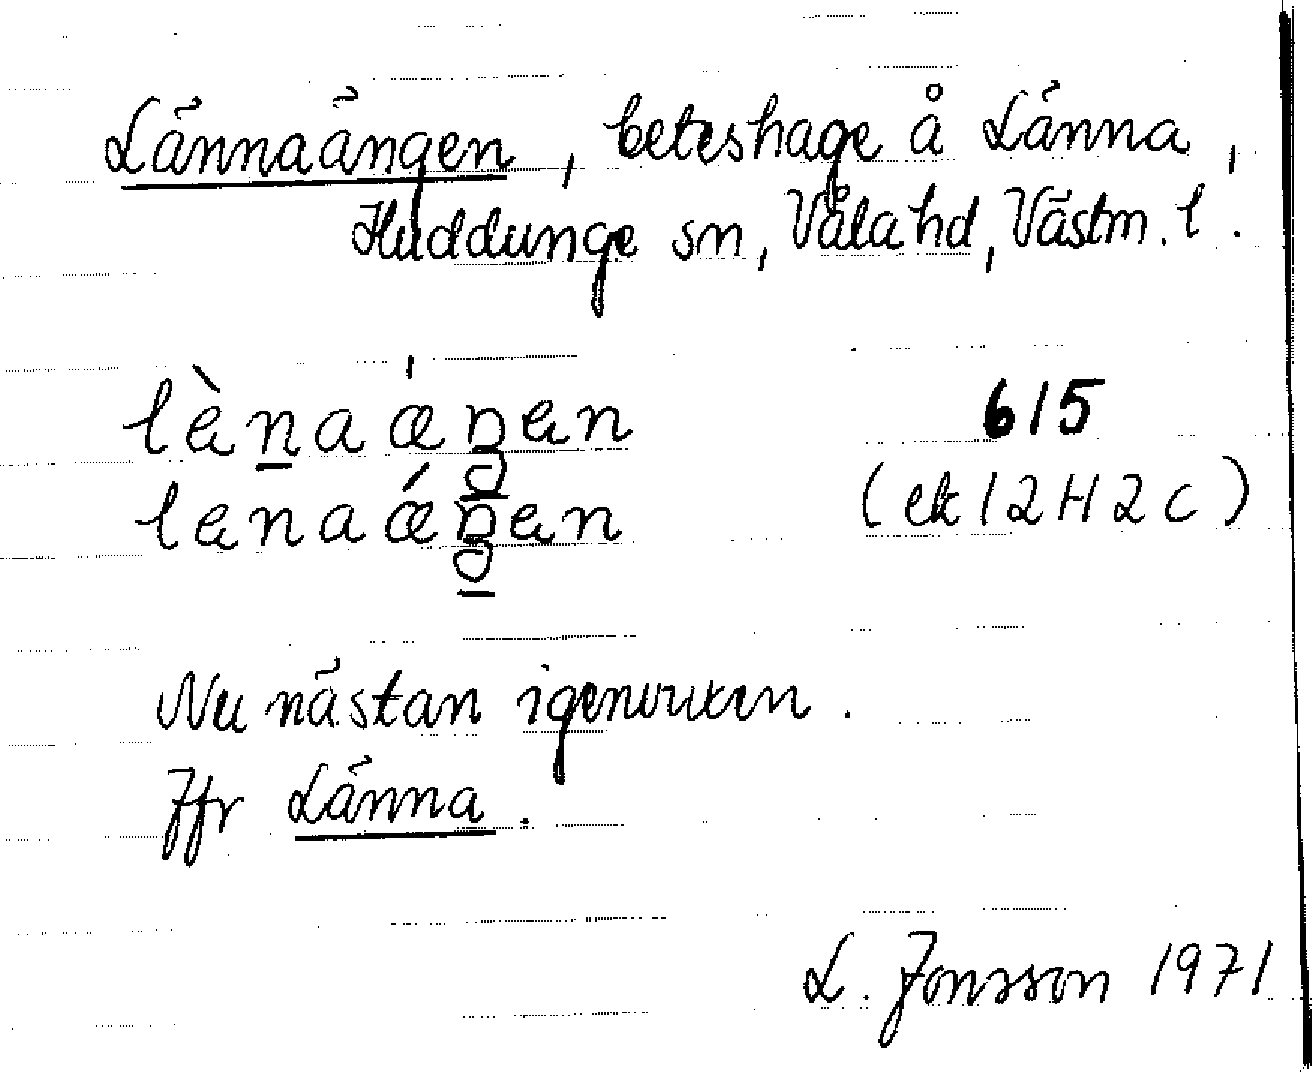 Lännaängen, beteshage å Länna,
Huddunge sn, Våla hd, Västm. l.
lènaǽŋen 615
lenaǽŋen (ek 12H2c)
Nu nästan igenvuxen.
Jfr Länna.
L. Jonsson 1971